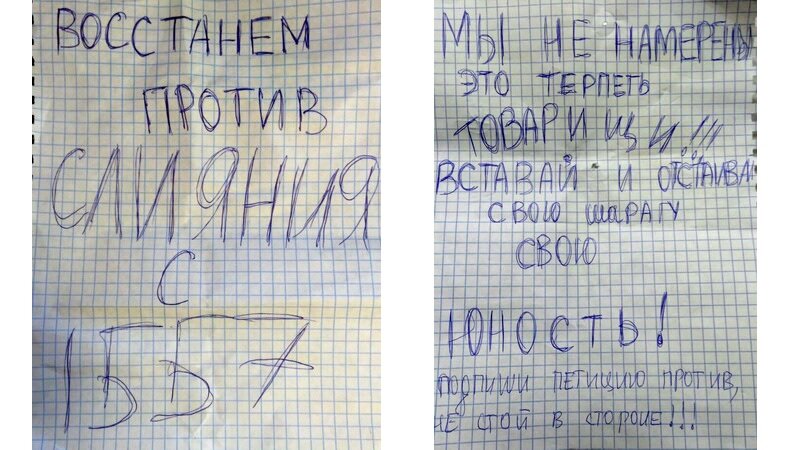 ВОССТАНЕМ
ПРОТИВ
СЛИЯНИЯ
С
1557
МЫ НЕ НАМЕРЕНЫ
ЭТО ТЕРПЕТЬ
ТОВАРИЩИ!!!
ВСТАВАЙ И ОТСТАИВАЙ
СВОЮ ШАРАГУ
СВОЮ
ЮНОСТЬ!
ПОДПИШИ ПЕТИЦИЮ ПРОТИВ,
НЕ СТОЙ В СТОРОНЕ!!!